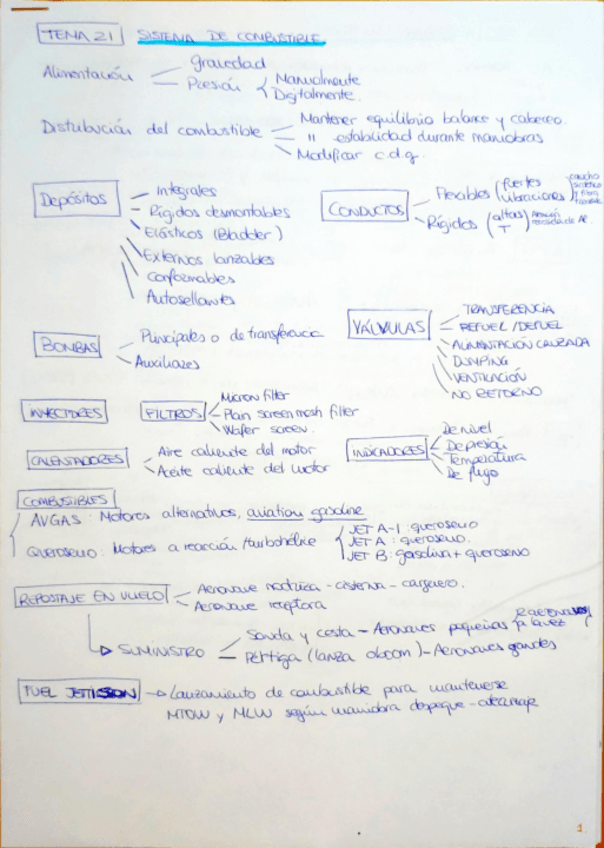 TEMA 21 SISTEMA DE COMBUSTIBLE
Alimentación gravedad
Presión Manualmente
Digitalmente.
Distribución del combustible Mantener equilibrio balance y cabeceo.
" estabilidad durante maniobras
Modificar c.d.g.
Depósitos Integrales
Rígidos desmontables
Elásticos (Bladder)
Externos lanzables
Conformables
Autosellantes
CONDUCTOS Flexibles (fuertes vibraciones) caucho sintético y fibra
Rígidos (altas T)
BOMBAS Principales o de transferencia
Auxiliares
VÁLVULAS TRANSFERENCIA
REFUEL / DEFUEL
ALIMENTACIÓN CRUZADA
DUMPING
VENTILACIÓN
NO RETORNO
INYECTORES
FILTROS Micron filter
Plain screen mesh filter
Wafer screen.
CALENTADORES Aire caliente del motor
Aceite caliente del motor
INDICADORES De nivel
De presión
Temperatura
De flujo
COMBUSTIBLES
AVGAS: Motores alternativos, aviation gasoline
QUEROSENO: Motores a reacción / turbohélice JET A-1: queroseno
JET A: queroseno.
JET B: gasolina + queroseno
REPOSTAJE EN VUELO Aeronave nodriza - cisterna - carguero.
Aeronave receptora
SUMINISTRO Sonda y cesta - Aeronaves pequeñas
Pértiga (lanza o boom) - Aeronaves grandes
FUEL JETTISON Lanzamiento de combustible para mantenerse
MTOW y MLW según maniobra despegue - aterrizaje
1